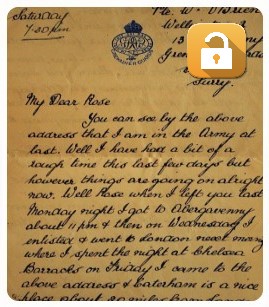 Saturday
7-30 pm
Pte. W. O'Brien
13
Surrey.
My Dear Rose
You can see by the above
address that I am in the Army at
last. Well I have had a bit of a
rough time this last few days but
however things are going on alright
now. Well Rose when I left you last
Monday night I got to Abergavenny
about 11 pm & then on Wednesday I
enlisted & went to London next morn
where I spent the night at Chelsea
Barracks on Friday I came to the
above address & Caterham is a nice
place about 20 miles from London